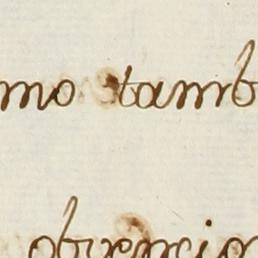 mo tamb
obvencio